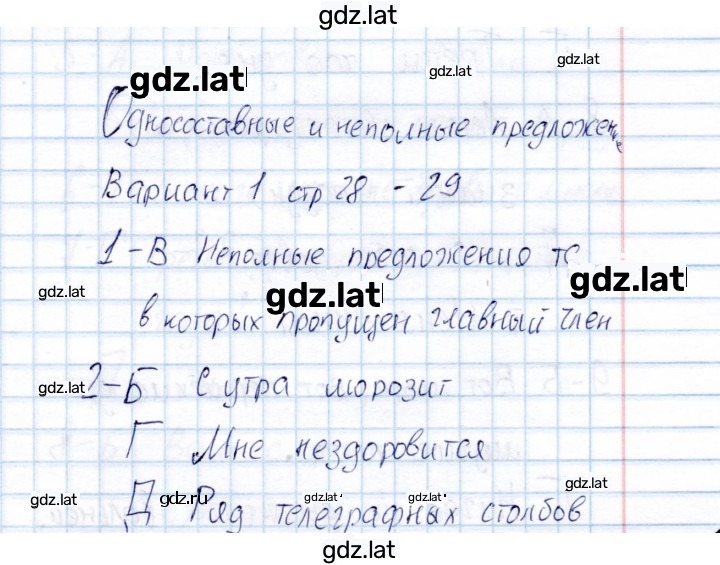 gdz.lat
gdz.lat
gdz.lat
gdz.lat
Односоставные и неполные предложен
Вариант 1 стр 28 - 29
1-В Неполные предложения
gdz.lat
gdz.lat
gdz.lat
в которых пропущен главный член
2-Б С утра морозит
gdz.lat
Г Мне нездоровится
gdz.lat
Д Ряд телеграфных столбов
gdz.lat
gdz.ru
gdz.lat
gdz.lat
gdz.lat